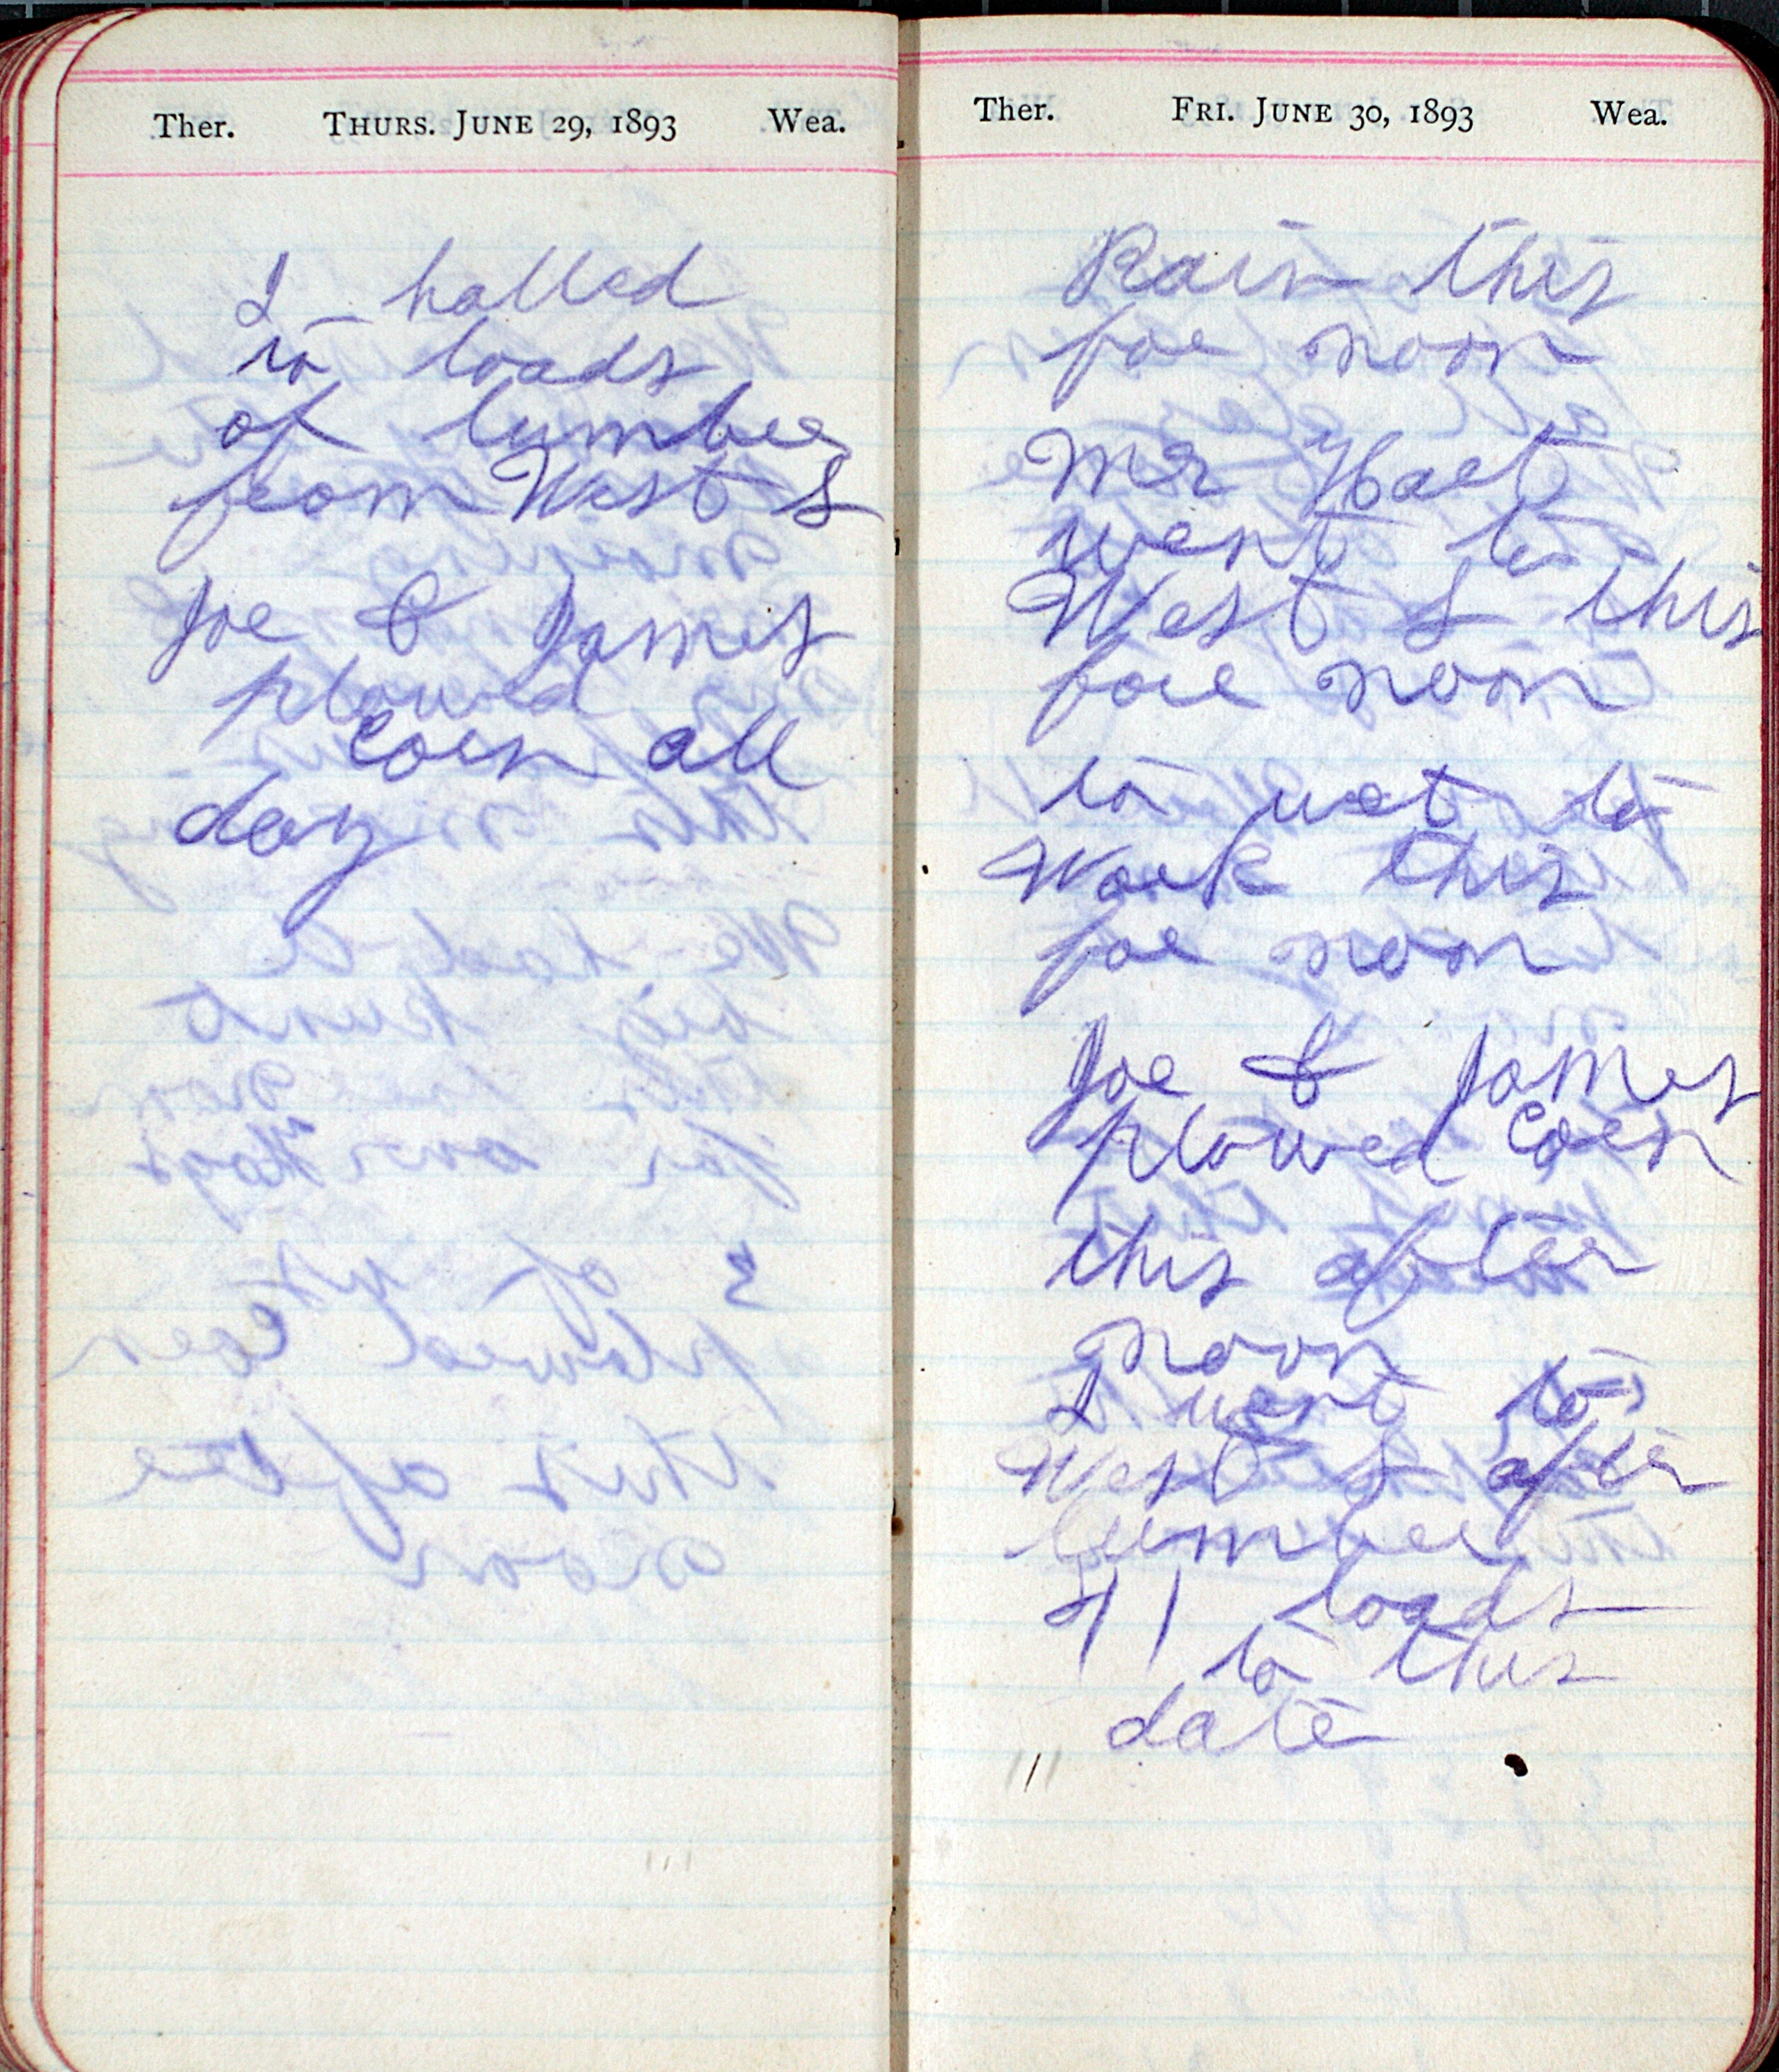 Ther. THURS. JUNE 29, 1893 Wea.
I halled
to loads
of lumber
from West L
Joe & James
plowed
Corn all
day
Ther. FRI. JUNE 30, 1893 Wea.
Rain this
for noon
Mr Hart
went to
West L this
fore noon
to wet to
Work this
for noon
Joe & James
plowed Corn
this after
noon
I went to
West L after
lumber
11 loads
to this
date